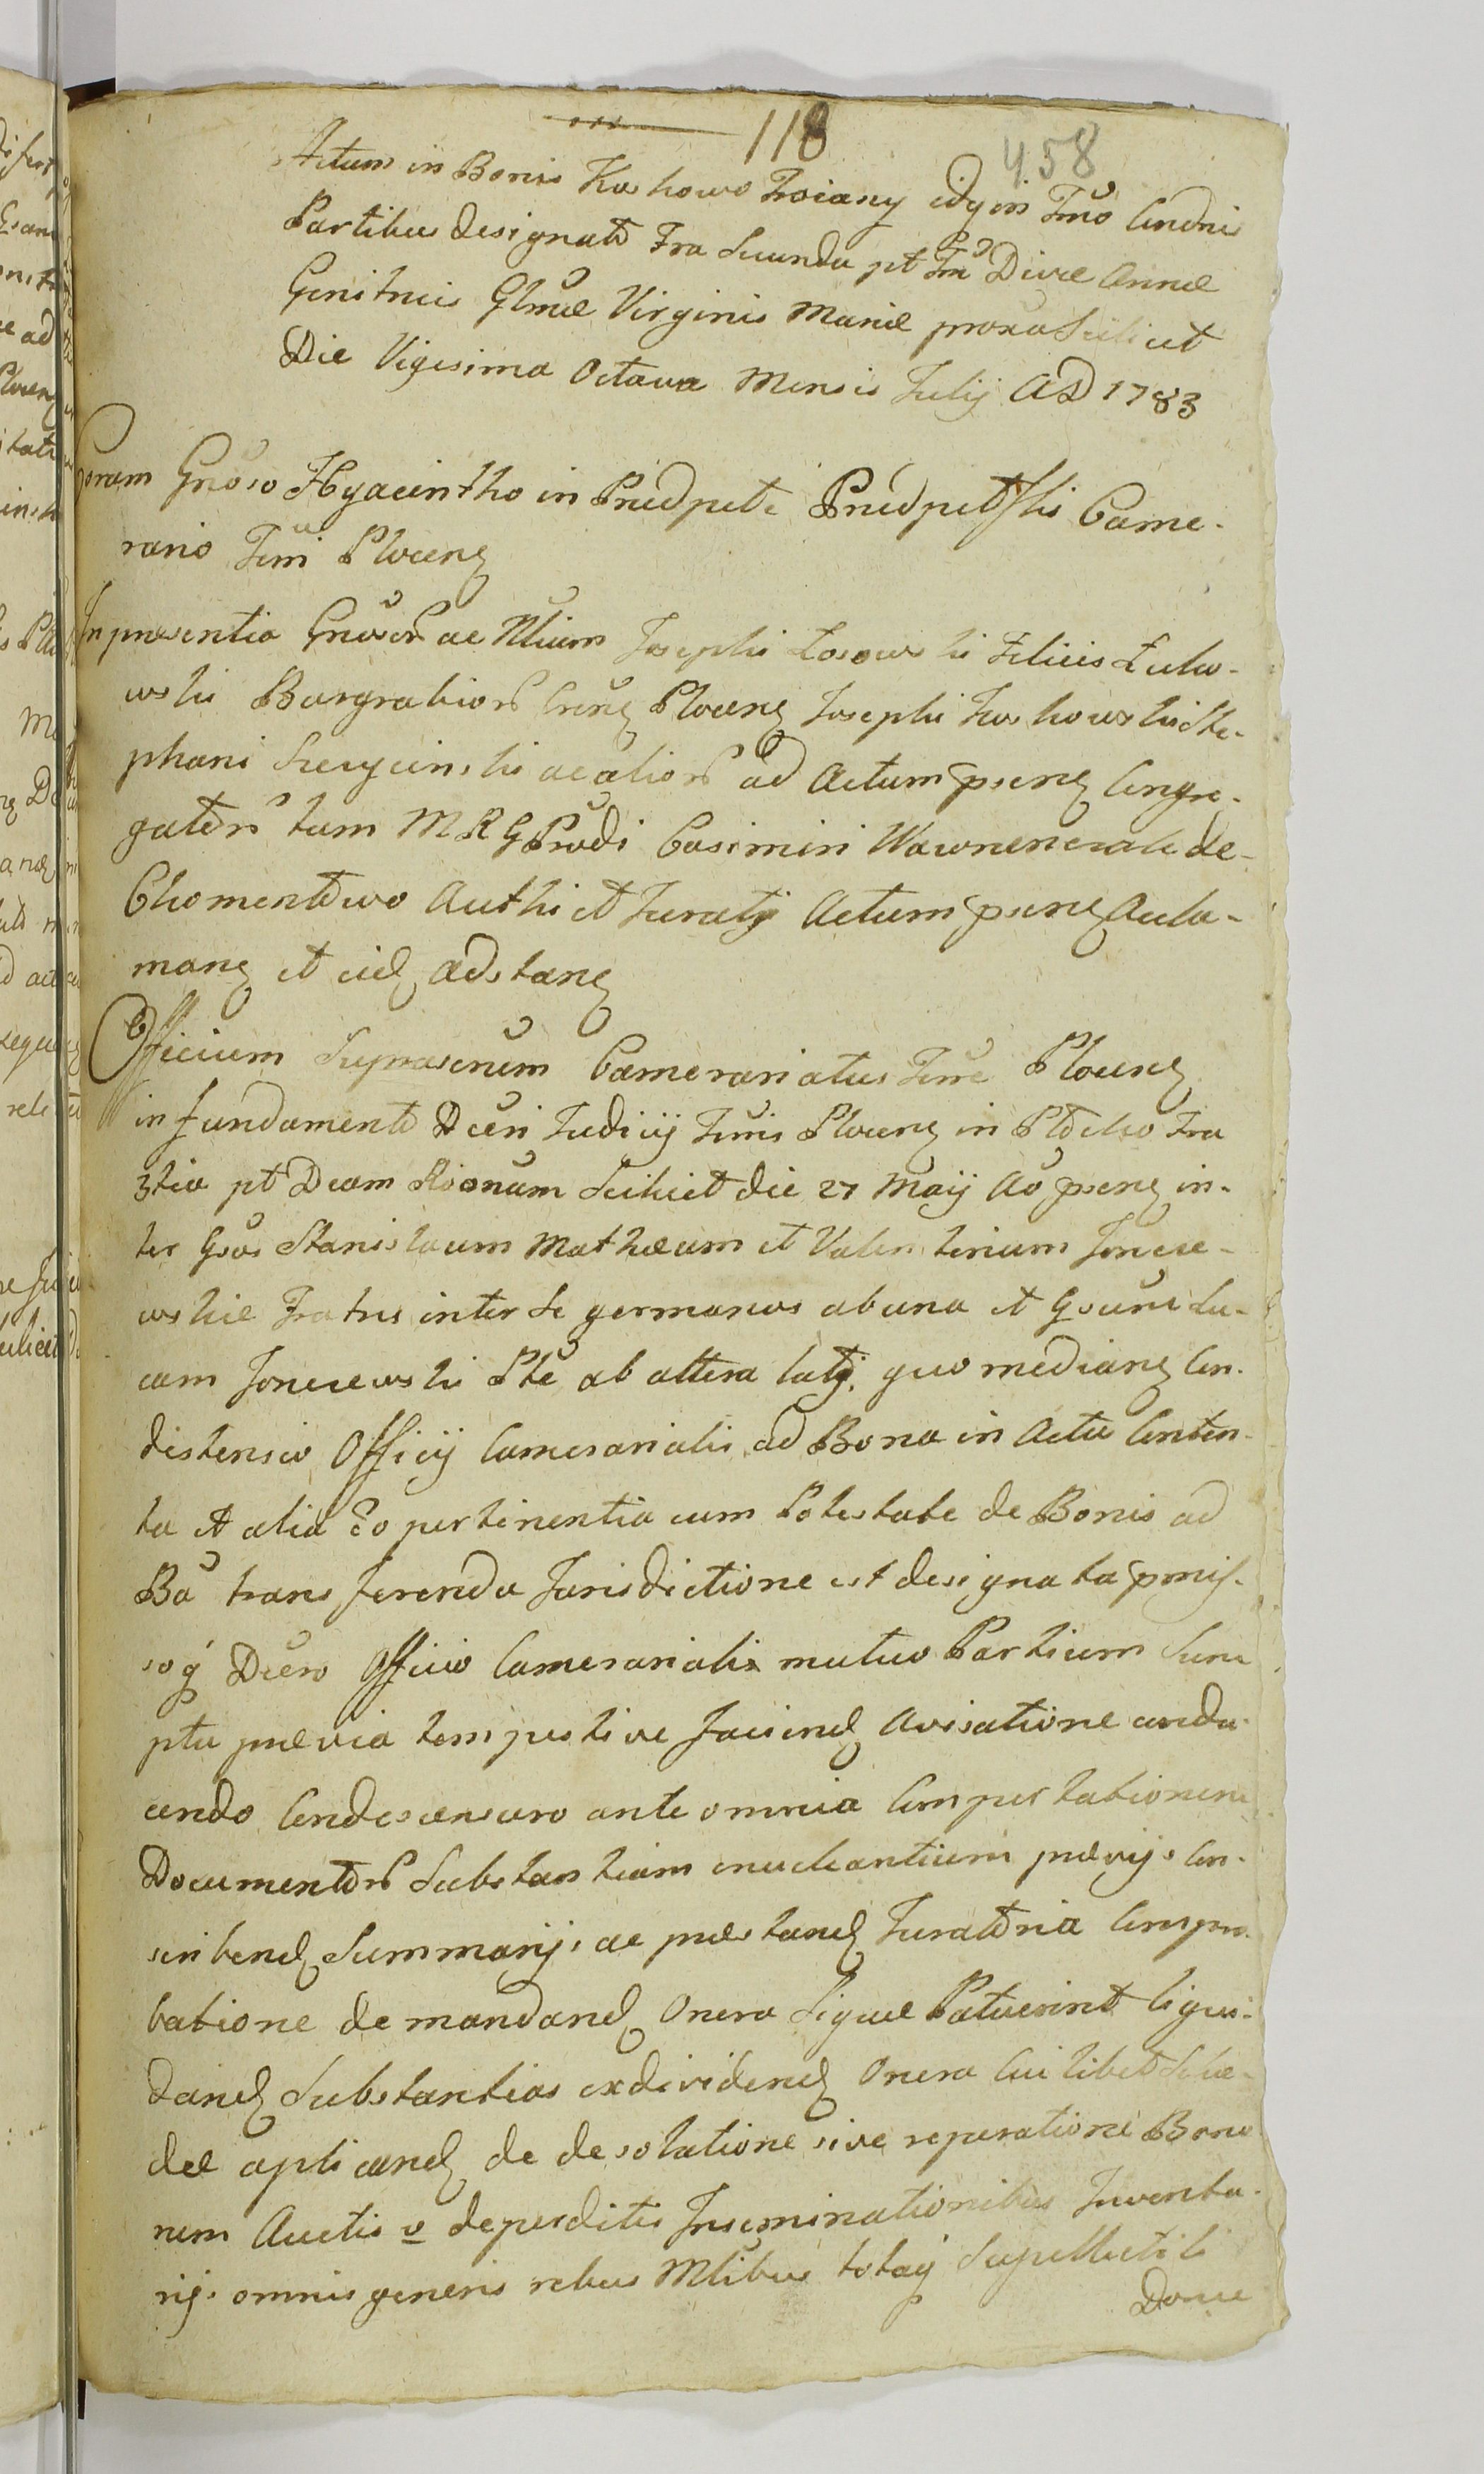 118
458
Actum in Bonis Koskowo Troiany idq in Tmo Condnis
Partibus designato Fra Secunda pt Fm Divæ Annæ
Genitricis Glmæ Virginis Mariæ proxa Scilicet
Die Vigesima Octava Mensis Julij AD 1783
Coram Gnoso Hyacintho in Prædpełe Prædpełski Came-
rario Terri Plocens
In præsentia Gnosor ac Nlium Josephi Łosowski Felicis Łuko-
wski Burgrabior Crens Plocens Josephi Koskowski Ste-
phani ac alior ad Actum psens Congre-
gator tum MRG Prodi Casimiri de
Chomentowo Authi et Jurati Actum psens Accla-
mans et eid adstans
Officium Suprascrum Camerariatus Terre Plocens
in fundamento Dcéri Judicij Terris Plocens in Płocko Fra
3tia pt Dcam Roonum Scilicet die 27 Maij Ao psens in-
ter Gsos Stanislaum Mathæum et Valentinum Joncze-
wskie Fratres inter se germanos ab una et Gsum Lu-
cam Jonczewski Pte ab altera latj. quo medians Con-
distensio Officij Camerarialis ad Bona in Actu Conten-
ta et alia Eo pertinentia cum Potestate de Bonis ad
Ba transferenda Jurisdictione est designata pmis-
soq Dcero Officio Camerarialis mutuo Partium Sum
ptu prævia tempestive faciend Avisatione condu-
cendo Condescensuro ante omnia Comportationem
Documentor Substantiam enucleantium prævijs Con-
scribend Summarijs ac præstand Juratoria Compro-
batione demandand Onera Siquæ Patuerint liqui-
dand Substantias exdividend Onera Cuilibet Sche-
dæ aplicand de desolatione sive reparatione Bono
rum Auctis v deperditis Inseminationibus Inventa-
rijs omnis generis rebus Mlibus totaq Supellectili
Dome